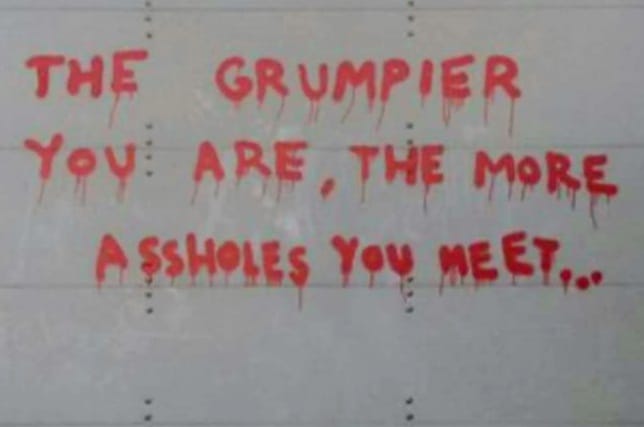 THE GRUMPIER
YOU ARE, THE MORE
ASSHOLES YOU MEET...